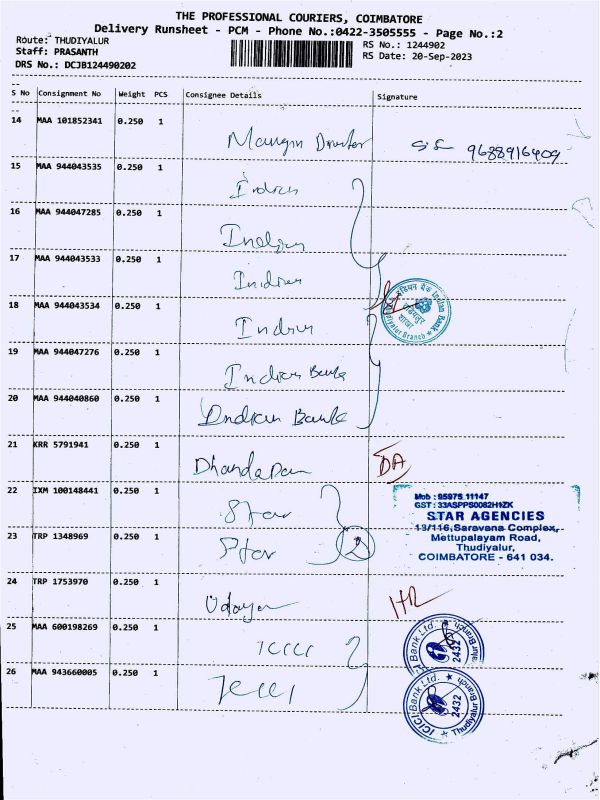 THE PROFESSIONAL COURIERS, COIMBATORE
Delivery Runsheet - PCM - Phone No.:0422-3505555 - Page No.:2
Route: THUDIYALUR
RS No.: 1244902
Staff: PRASANTH
RS Date: 20-Sep-2023
DRS No.: DCJB124490202
S No Consignment No Weight PCS Consignee Details Signature
14 MAA 101852341 0.250 1 9688916409
15 MAA 944043535 0.250 1 Indian
16 MAA 944047285 0.250 1 Indian
17 MAA 944043533 0.250 1 Indian
18 MAA 944043534 0.250 1 Indian
इंडियन बैंक Indian Bank
Thudiyalur Branch
19 MAA 944047276 0.250 1 Indian Bank
20 MAA 944040860 0.250 1 Indian Bank
21 KRR 5791941 0.250 1 Dhandapani
22 IXM 100148441 0.250 1 Star
Mob : 95975 11147
GST : 33ASPPS0082H1ZK
STAR AGENCIES
13/116,Saravana Complex,
Mettupalayam Road,
Thudiyalur,
COIMBATORE - 641 034.
23 TRP 1348969 0.250 1 Star 2
24 TRP 1753970 0.250 1 Udaya
25 MAA 600198269 0.250 1 ICICI
Bank Ltd.
2432
26 MAA 943660005 0.250 1 ICICI
ICICI Bank Ltd. Thudiyalur Branch
2432